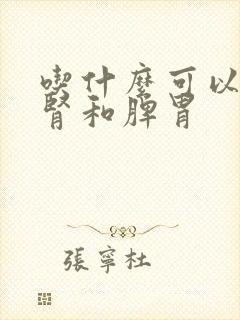 喫什麼可以
腎和脾胃
張寧杜